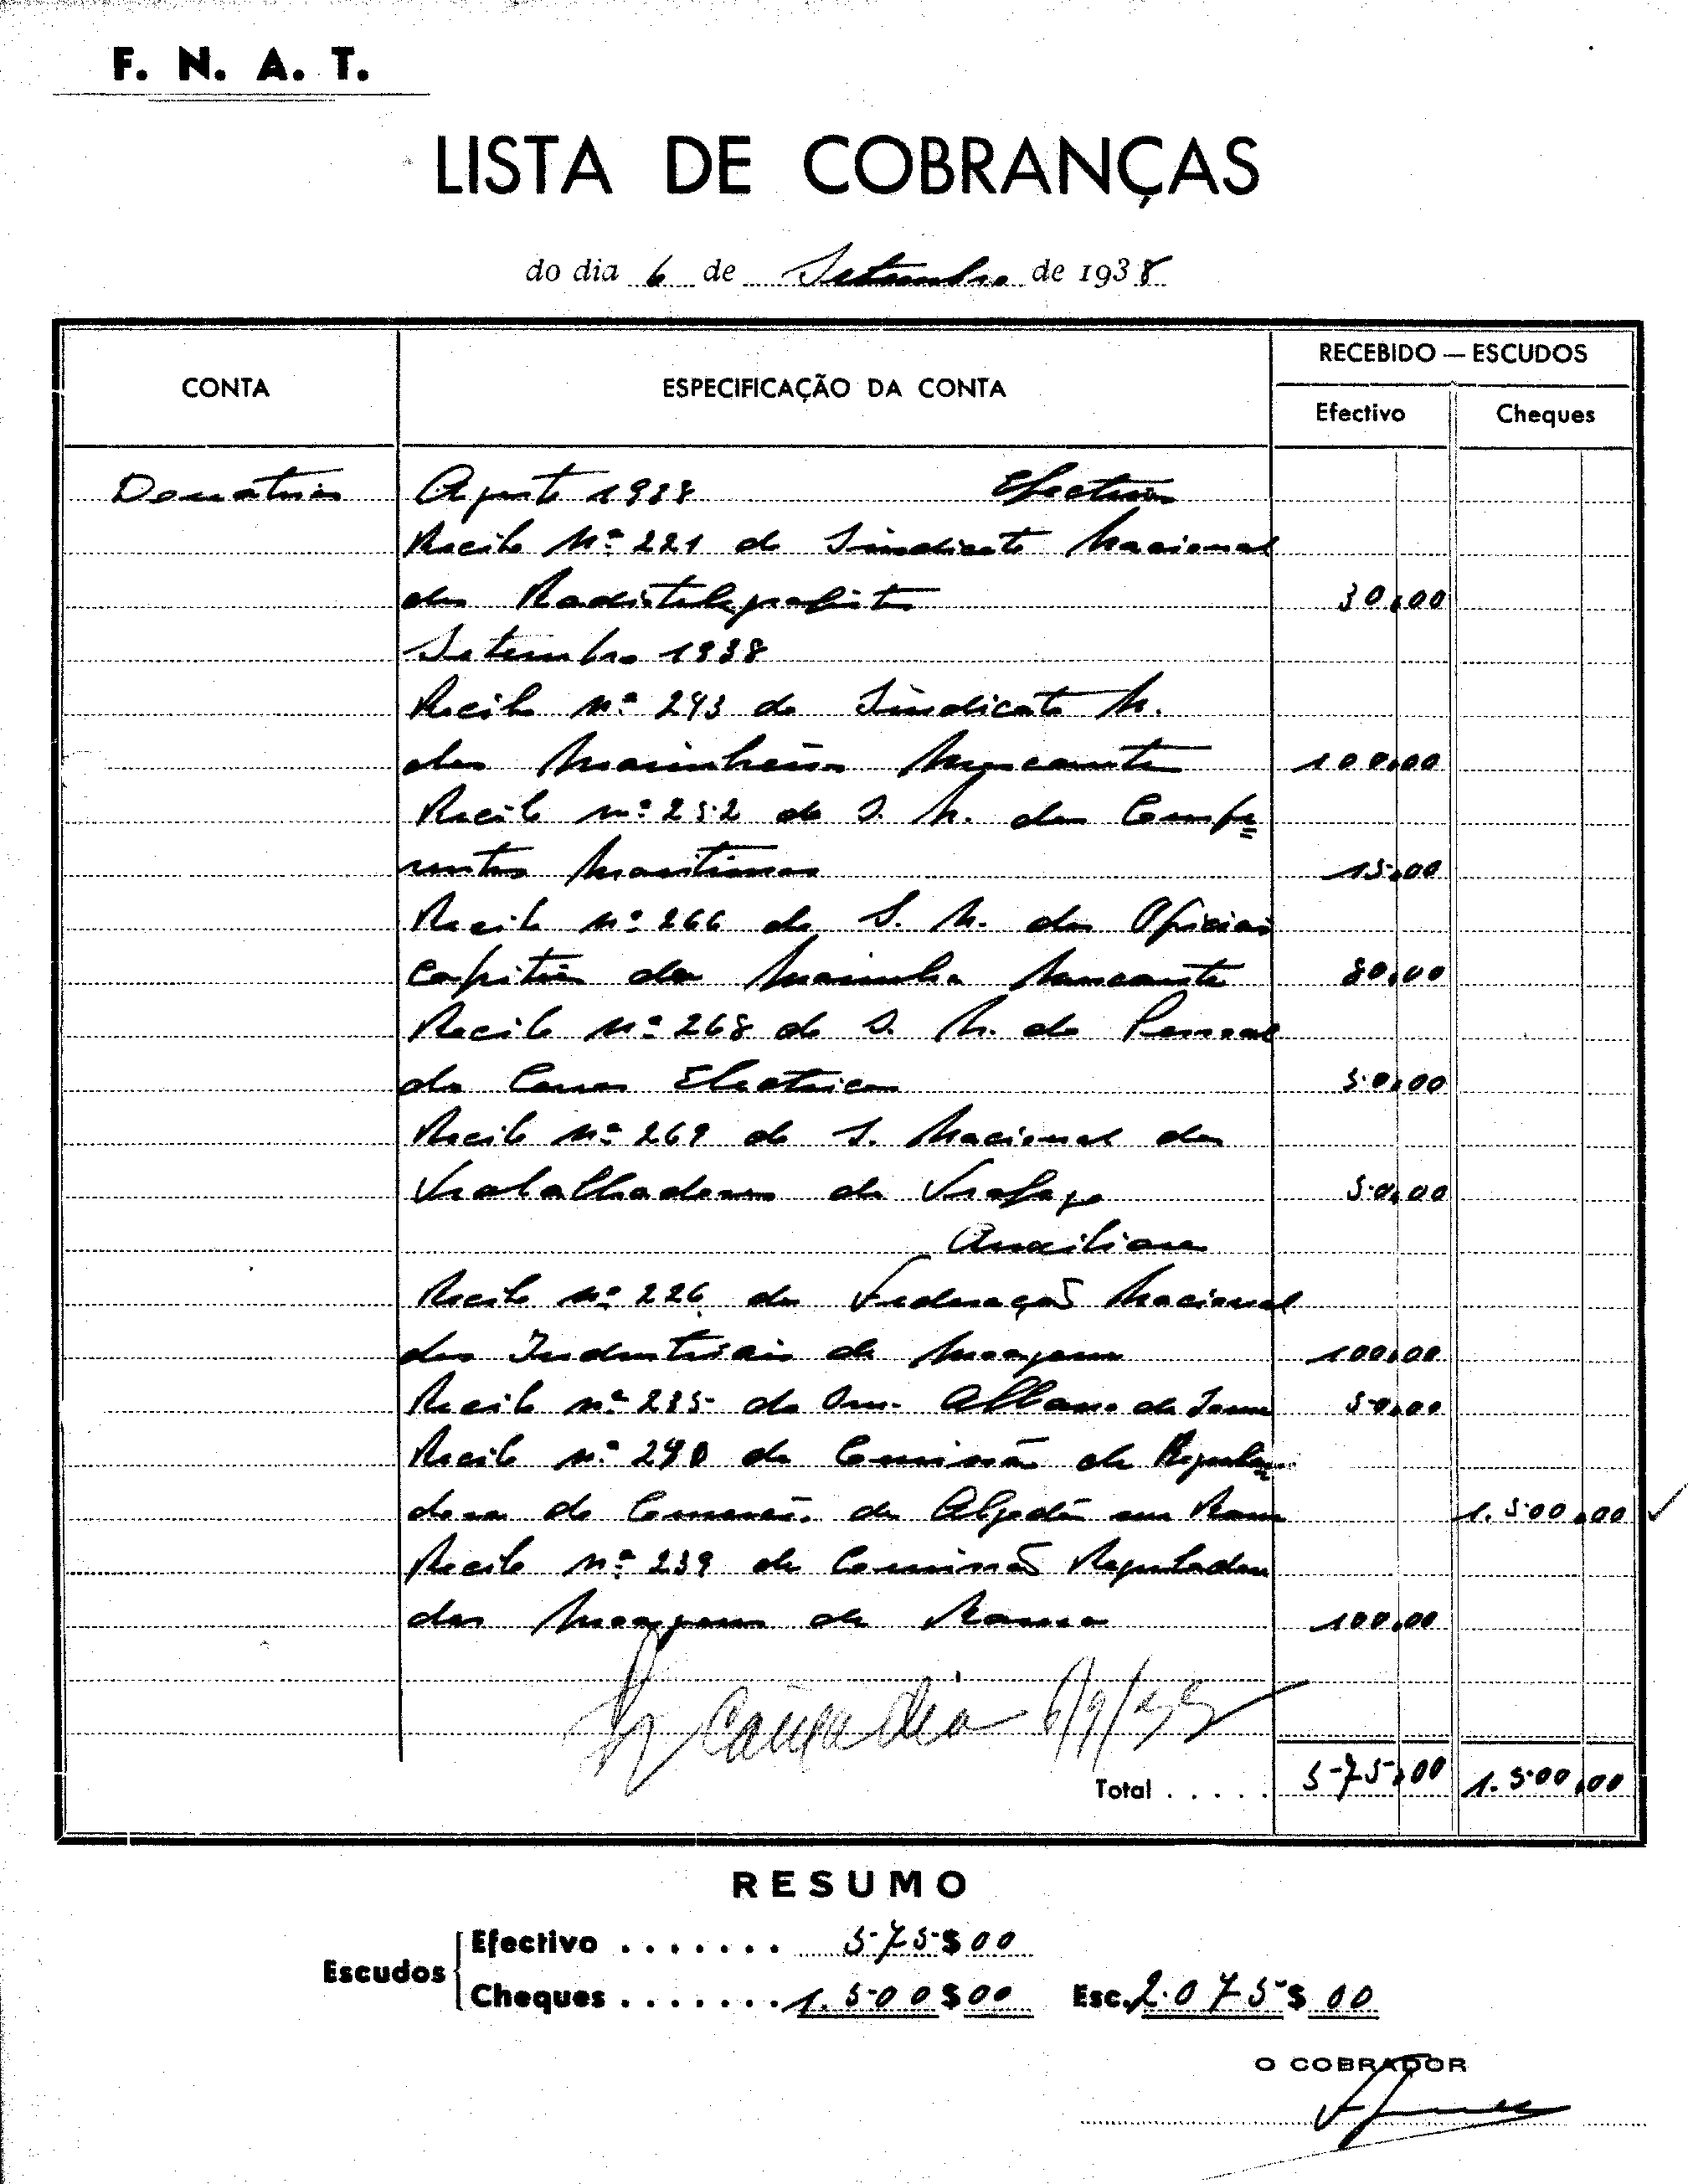 F. N. A. T.
LISTA DE COBRANÇAS
do dia 6 de Setembro de 1938
CONTA
ESPECIFICAÇÃO DA CONTA
RECEBIDO — ESCUDOS
Efectivo
Cheques
Donativos Agosto 1938 Efectivos
Recibo Nº 221 do Sindicato Nacional
dos Radiotelegrafistas 30,00
Setembro 1938
Recibo nº 293 do Sindicato N.
dos Marinheiros Mercantes 100,00
Recibo nº 252 do S. N. dos
Maritimos 15,00
Recibo nº 266 do S. N. dos Oficiais
Capitães da Marinha Mercante 80,00
Recibo nº 268 do S. N. do Pessoal
dos Carros Electricos 50,00
Recibo nº 269 do S. Nacional dos
Trabalhadores do Trafego 50,00
Auxiliares
Recibo nº 226 da Federação Nacional
dos Industriais de Moagem 100,00
Recibo nº 235 do Albano de Sousa 50,00
Recibo nº 290 da Comissão de Regula
dora do Comercio de Algodão em Rama 1.500,00
Recibo nº 239 da Comissão Reguladora
das Moagens de Ramas 100,00
6/9/38
Total . . . . . 575,00 1.500,00
RESUMO
Escudos
Efectivo . . . . . . . 575$00
Cheques . . . . . . . 1.500$00 Esc. 2.075$00
O COBRADOR